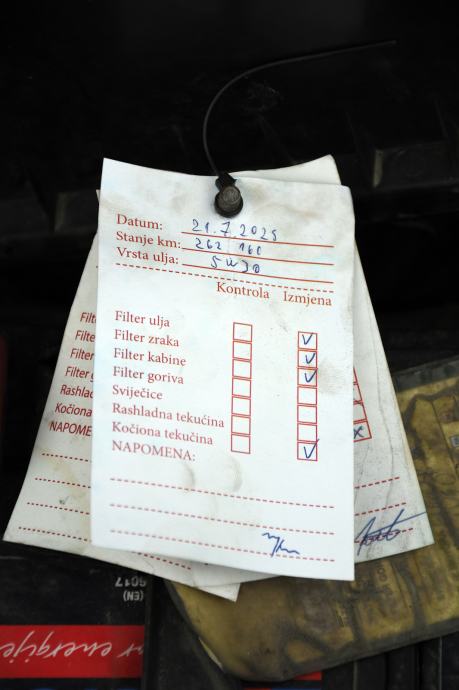 Datum: 21.7.2025
Stanje km: 262 160
Vrsta ulja: 5W30
Kontrola Izmjena
Filter ulja
Filter zraka
Filter kabine
Filter goriva
Sviječice
Rashladna tekućina
Kočiona tekućina
NAPOMENA:
Filt
Filte
Filte
Filter g
Rashlad
Kočiona
NAPOME
x
(EN)
6017
r energije